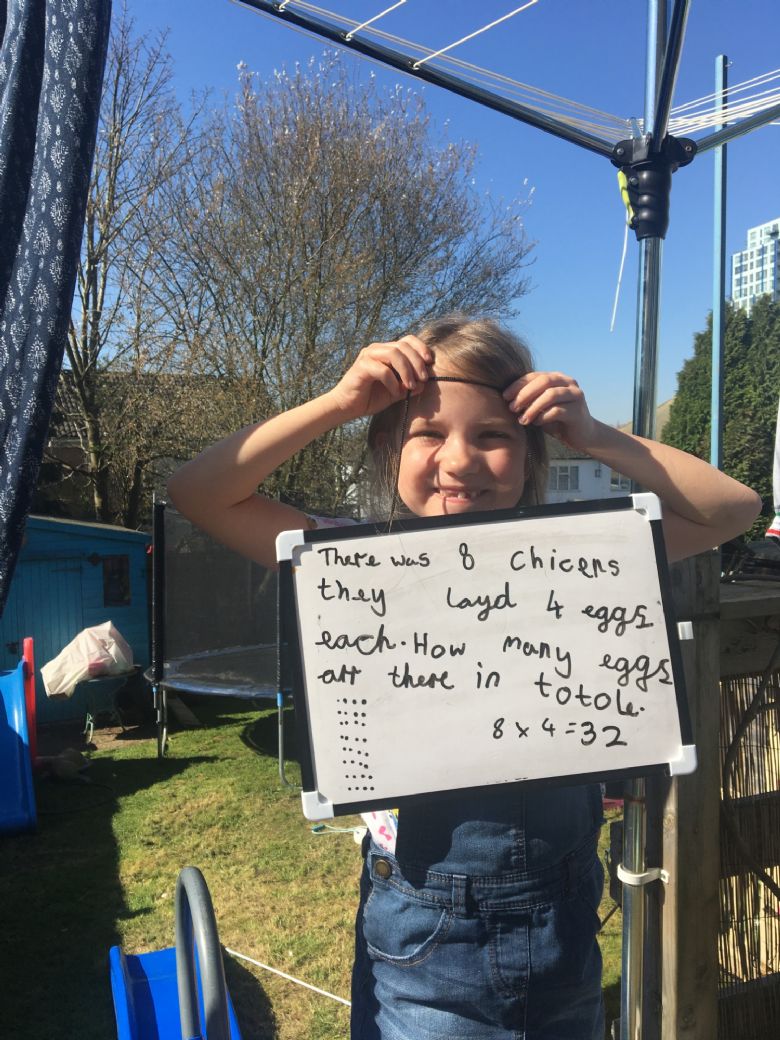 There was 8 chicens
they layd 4 eggs
each. How many eggs
arr there in totole.
8 x 4 = 32